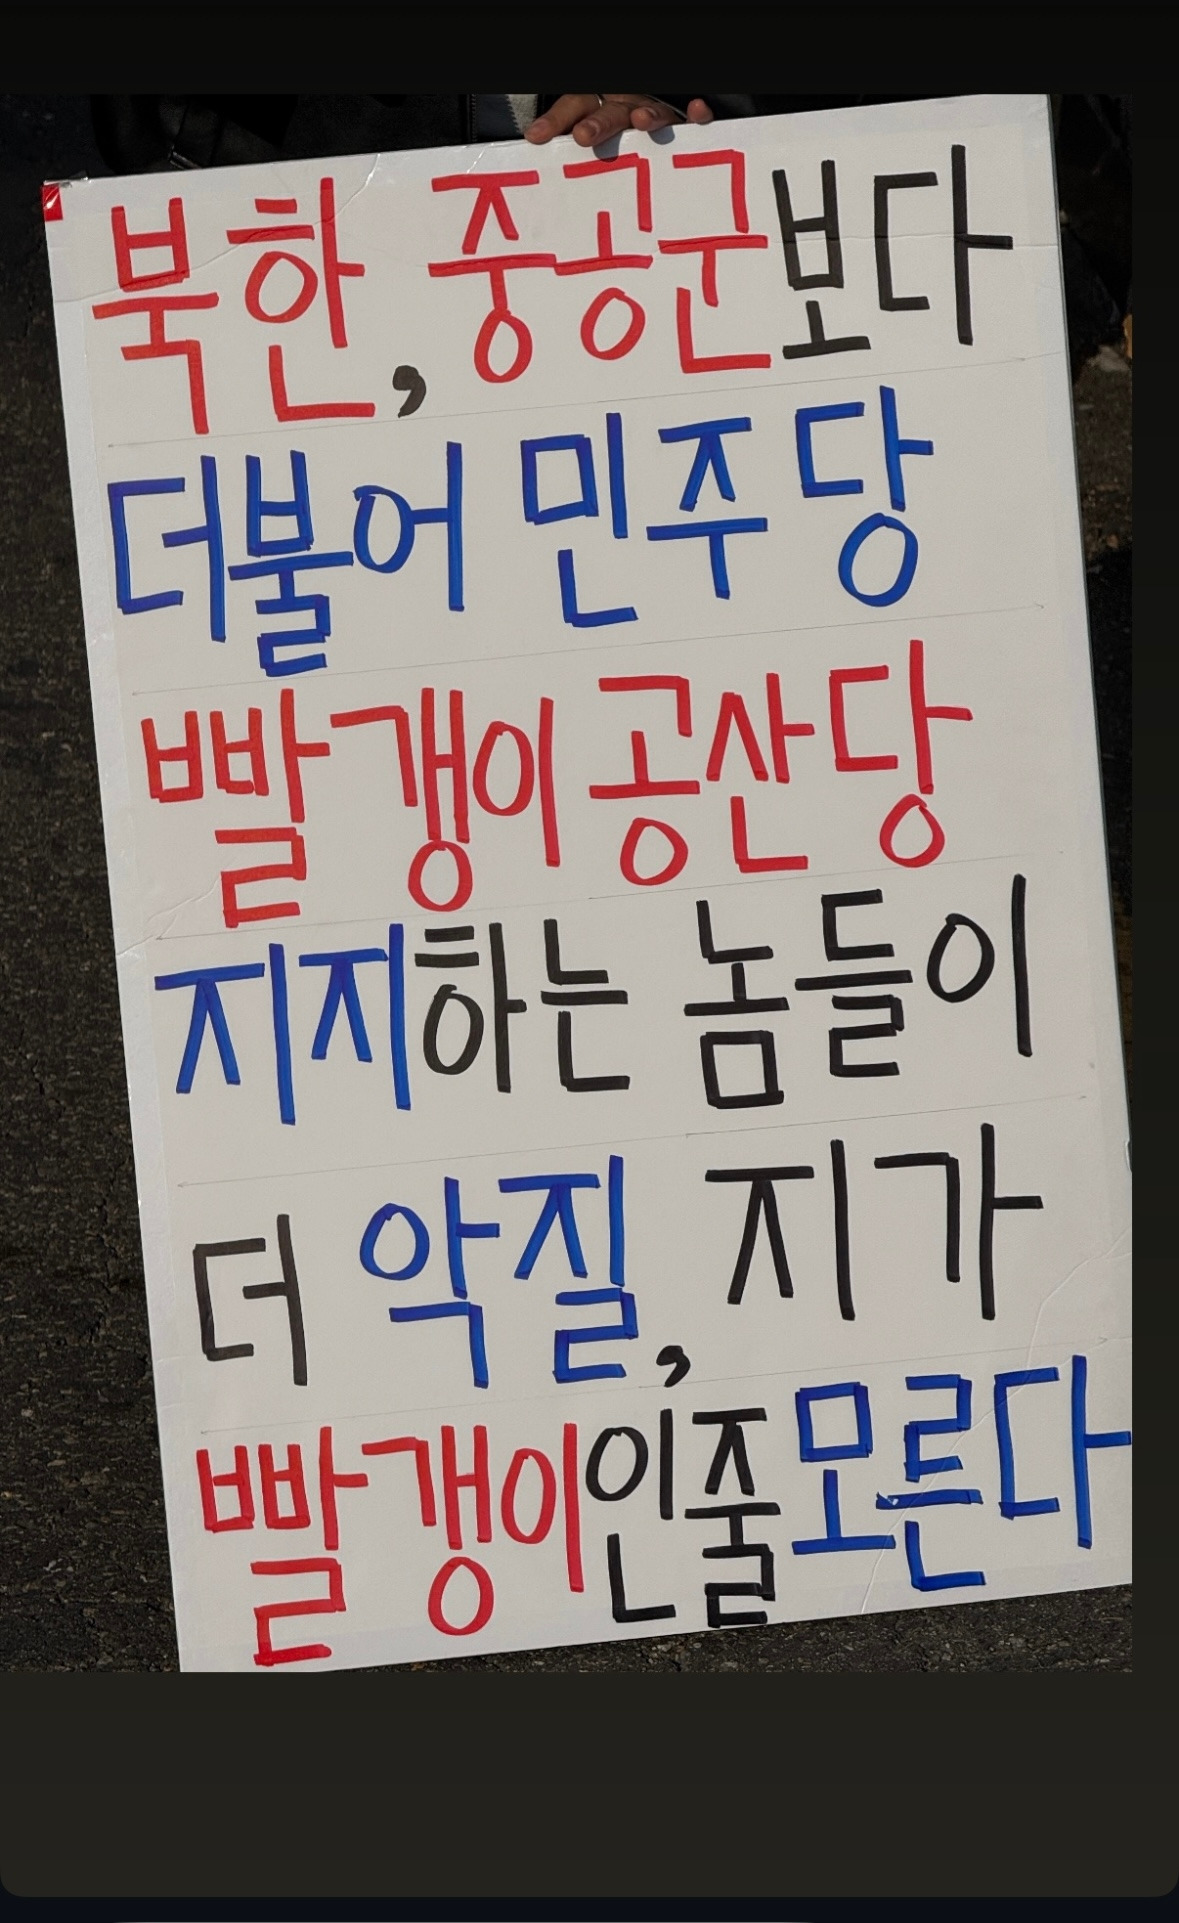 북한, 중공군보다
더불어 민주당
빨갱이 공산당
지지하는 놈들이
더 악질, 지가
빨갱이인줄모른다